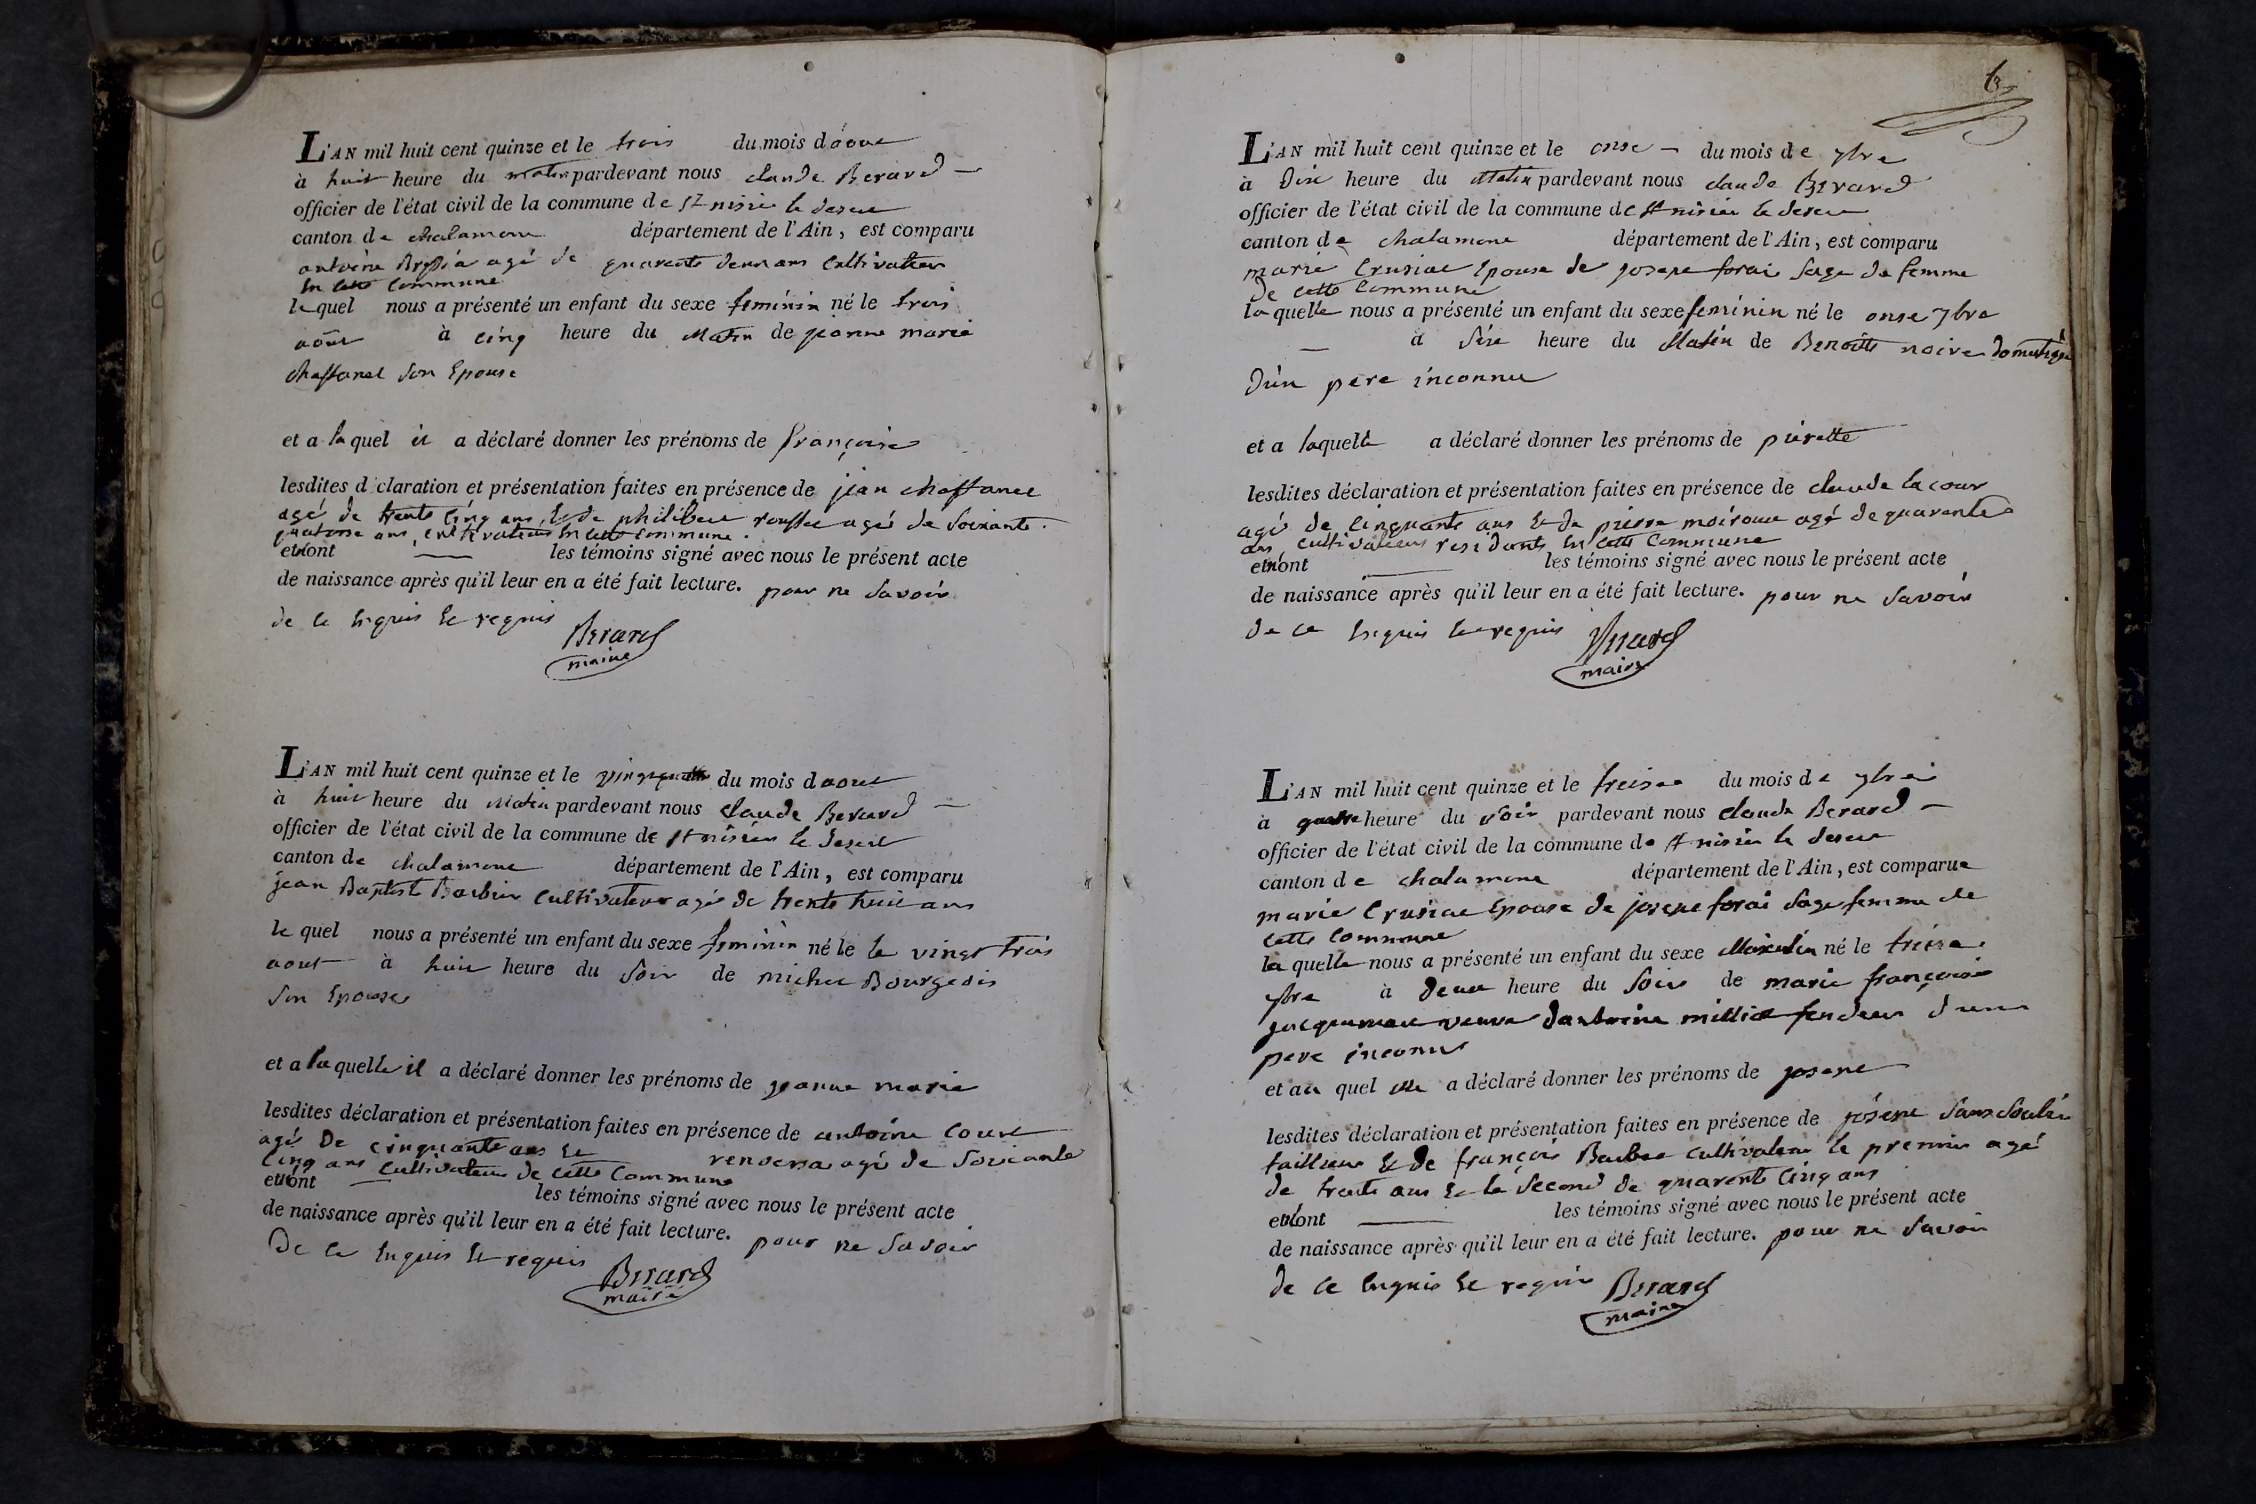 L'AN mil huit cent quinze et le trois du mois d'aout
à huit heure du matin pardevant nous claude Berard —
officier de l'état civil de la commune de st nisier le desert
canton de chalamont département de l'Ain, est comparu
antoine agé de quarente deux ans cultivateur
en cette commune
le quel nous a présenté un enfant du sexe feminin né le trois
aout à cinq heure du matin de jeanne marie
chaffanel son Epouse
et a laquel il a déclaré donner les prénoms de françoise
lesdites d claration et présentation faites en présence de jean chaffanel
agé de trente cinq ans, et de philibert agé de soixante
quatorse ans, cultivateurs en cette commune.
et n'ont — les témoins signé avec nous le présent acte
de naissance après qu'il leur en a été fait lecture. pour ne savoir
de ce enquis et requis
Berard
maire
L'AN mil huit cent quinze et le vingtquatre du mois d aout
à huit heure du matin pardevant nous claude Berard —
officier de l'état civil de la commune de st nisier le desert
canton de chalamont département de l'Ain, est comparu
jean Baptiste Barbier cultivateur agé de trente huit ans
le quel nous a présenté un enfant du sexe feminin né le le vingt trois
aout à huit heure du soir de Bourgeois
son Epouse
et a laquelle il a déclaré donner les prénoms de jeanne marie
lesdites déclaration et présentation faites en présence de antoine
agé De cinquante ans et agé de soixante
cinq ans cultivateurs de cette commune
et n'ont — les témoins signé avec nous le présent acte
de naissance après qu'il leur en a été fait lecture. pour ne savoir
de ce enquis et requis
Berard
maire
L'AN mil huit cent quinze et le onse — du mois de 7bre
à Dix heure du matin pardevant nous claude Berard
officier de l'état civil de la commune de st nisier le desert
canton de chalamont département de l'Ain, est comparu
marie Epouse de josepe forai sage da femme
de cette commune
laquelle nous a présenté un enfant du sexe feminin né le onse 7bre
— à heure du Matin de Benoite noire domestique
d'un pere inconnu
et a laquelle a déclaré donner les prénoms de pierette
lesdites déclaration et présentation faites en présence de claude la cour
agé de cinquante ans et de pierre agé de quarente
ans, cultivateurs residants en cette commune
et n'ont — les témoins signé avec nous le présent acte
de naissance après qu'il leur en a été fait lecture. pour ne savoir
de ce enquis et requis
Berard
maire
L'AN mil huit cent quinze et le treise du mois de 7bre
à quatre heure du soir pardevant nous claude Berard —
officier de l'état civil de la commune de st nisier le desert
canton de chalamont département de l'Ain, est comparue
marie Epouse de josepe forai sage femme de
cette commune
la quelle nous a présenté un enfant du sexe Masculin né le treise
7bre à deux heure du soir de marie françoise
veuve dantoine fendeur d un
pere inconnu
et au quel elle a déclaré donner les prénoms de josepe
lesdites déclaration et présentation faites en présence de josepe
tailleur et de françois cultivateur le premier agé
de trente ans et le second de quarente cinq ans
et n'ont — les témoins signé avec nous le présent acte
de naissance après qu'il leur en a été fait lecture. pour ne savoir
de ce enquis et requis
Berard
maire